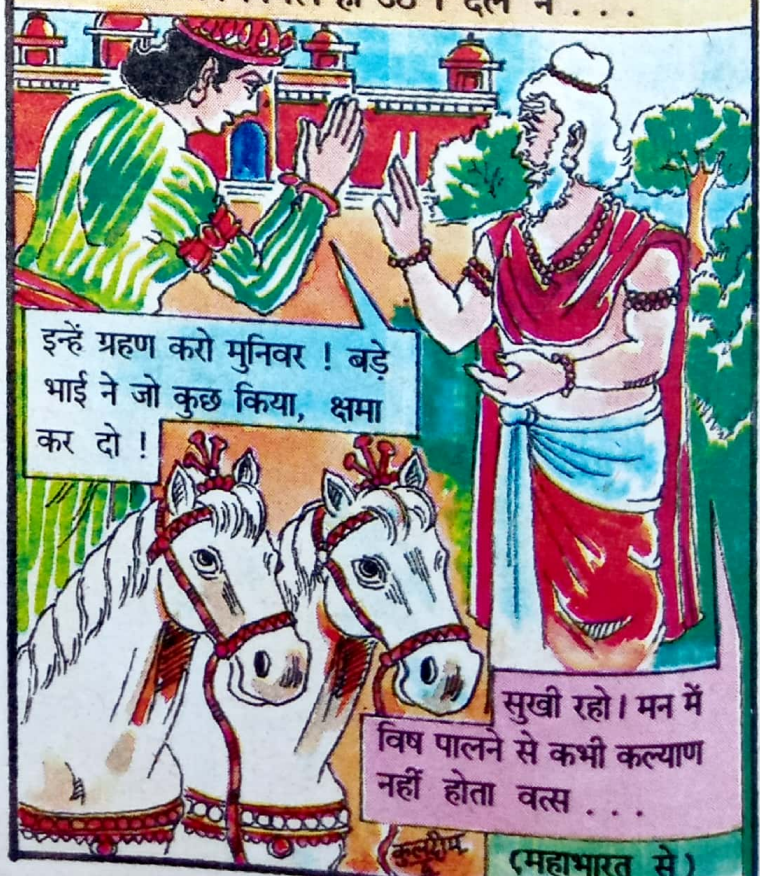 इन्हें ग्रहण करो मुनिवर ! बड़े
भाई ने जो कुछ किया, क्षमा
कर दो !
सुखी रहो। मन में
विष पालने से कभी कल्याण
नहीं होता वत्स . . .
(महाभारत से)